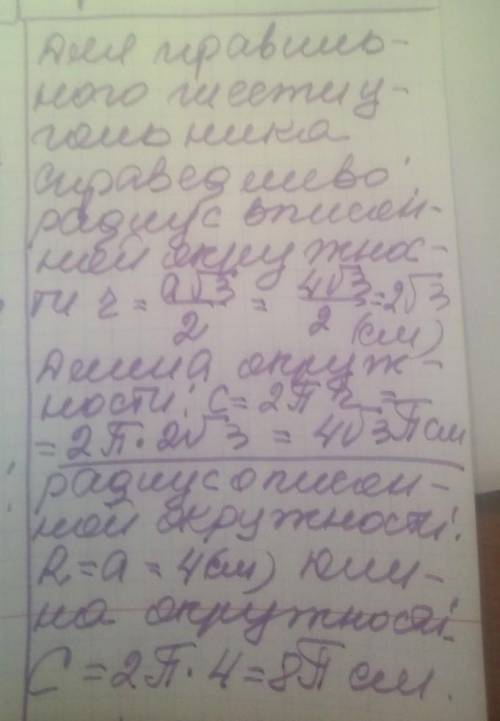 Для правиль-
ного шестиу-
гольника
справедливо:
радиус вписан-
ной окружнос-
ти r = a√3/2 = 4√3/2 = 2√3
(см)
Длина окруж-
ности: C = 2πr =
= 2π · 2√3 = 4√3π см
радиус описан-
ной окружности:
R = a = 4(см) Дли-
на окружности:
C = 2π · 4 = 8π см.